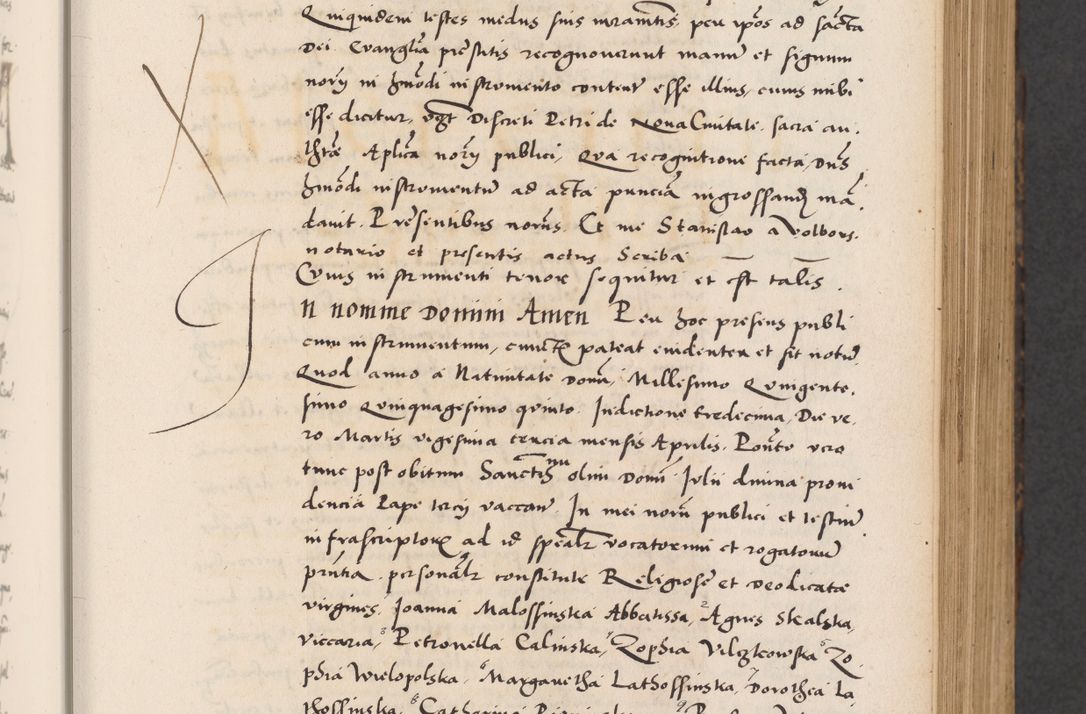 Quiquidem testes medus suis iuramētis per ipōs ad sācta
Dei Evanglīa prēstitis recognoverunt manū et signum
norīj in hmōdi instrumento contentū esse illius, cuius mihi
esse dicitur, vgt Discreti Petri de Nova Civitate sacra au
thtāe Aplicā norīj publici, Qua recognitione facta, Dnūs
hmōdi instrumentū ad acta pnciā ingrossand mā
davit. Presentibus norīis. Et me Stanislao a Volbors
notario et presentis actus Scriba
Cuius instrumenti tenor sequitur et est talis.
In nomine Domini Amen Per hoc presens publi
cum instrumentum, cunctis pateat evidenter et sit notū
Quod anno a Nativitate Domī, Millesimo Quingente
simo Quinquagesimo quinto. Indictione tredecima, Die ve
ro Martis vigesima tercia mensis Aprilis. Pontē vero
tunc post obitum Sanctīss mi olim Domī Julii divina provi
dencia Pape tercij vaccanī. In mei norīj publici et testiū
infrascriptorum ad id spēalr vocatorum et rogatorum
prñtia personālr constitute Religiose et Deo dicate
virgines, Joanna Malossinska Abbatissa, 2 Agnes Skalska,
viccaria, 3 Petronella Calinska, 4 Zophia Vilczkowska 5 Zo
phia Wielopolska, 6 Margaretha Lathossinska, 7 Dorothea La
thossinska, 8 Catharina